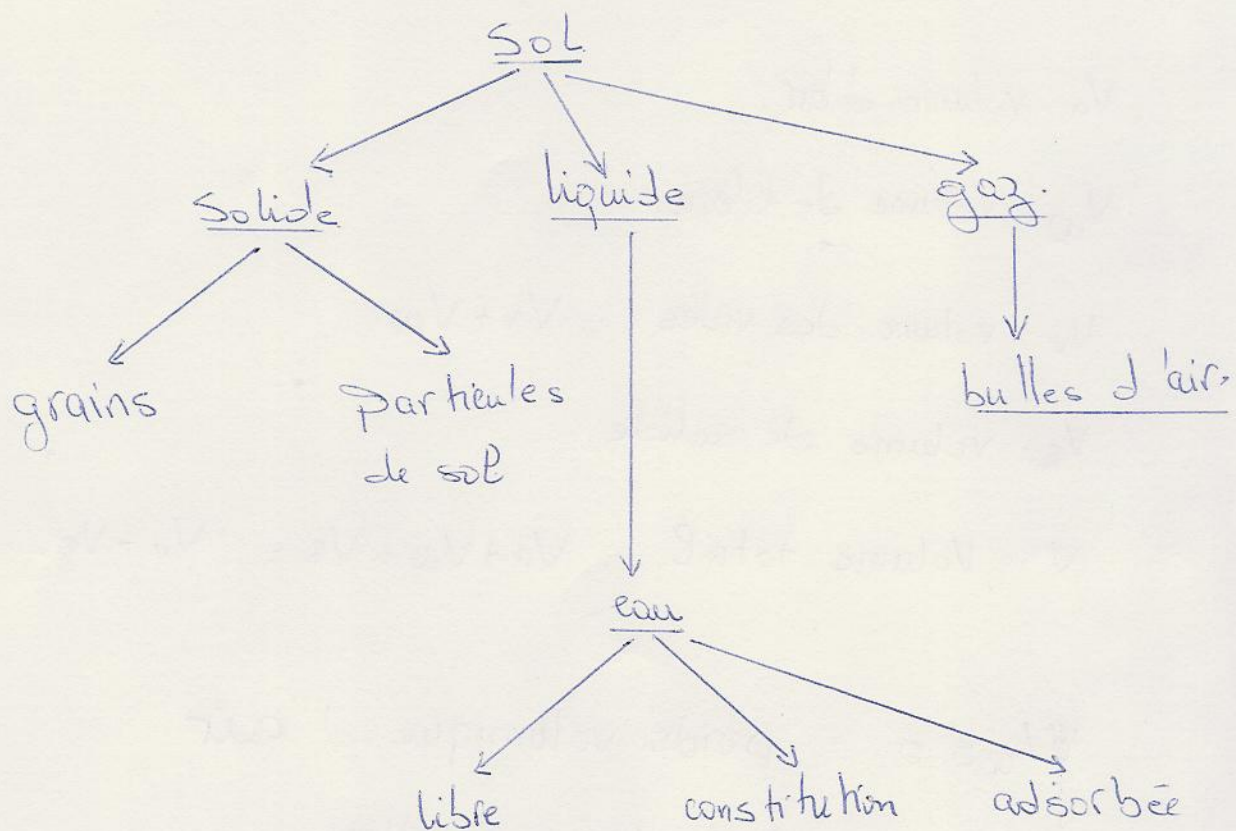 Sol
Solide
liquide
gaz.
grains
particules
de sol
bulles d'air.
eau
libre
constitution
adsorbée